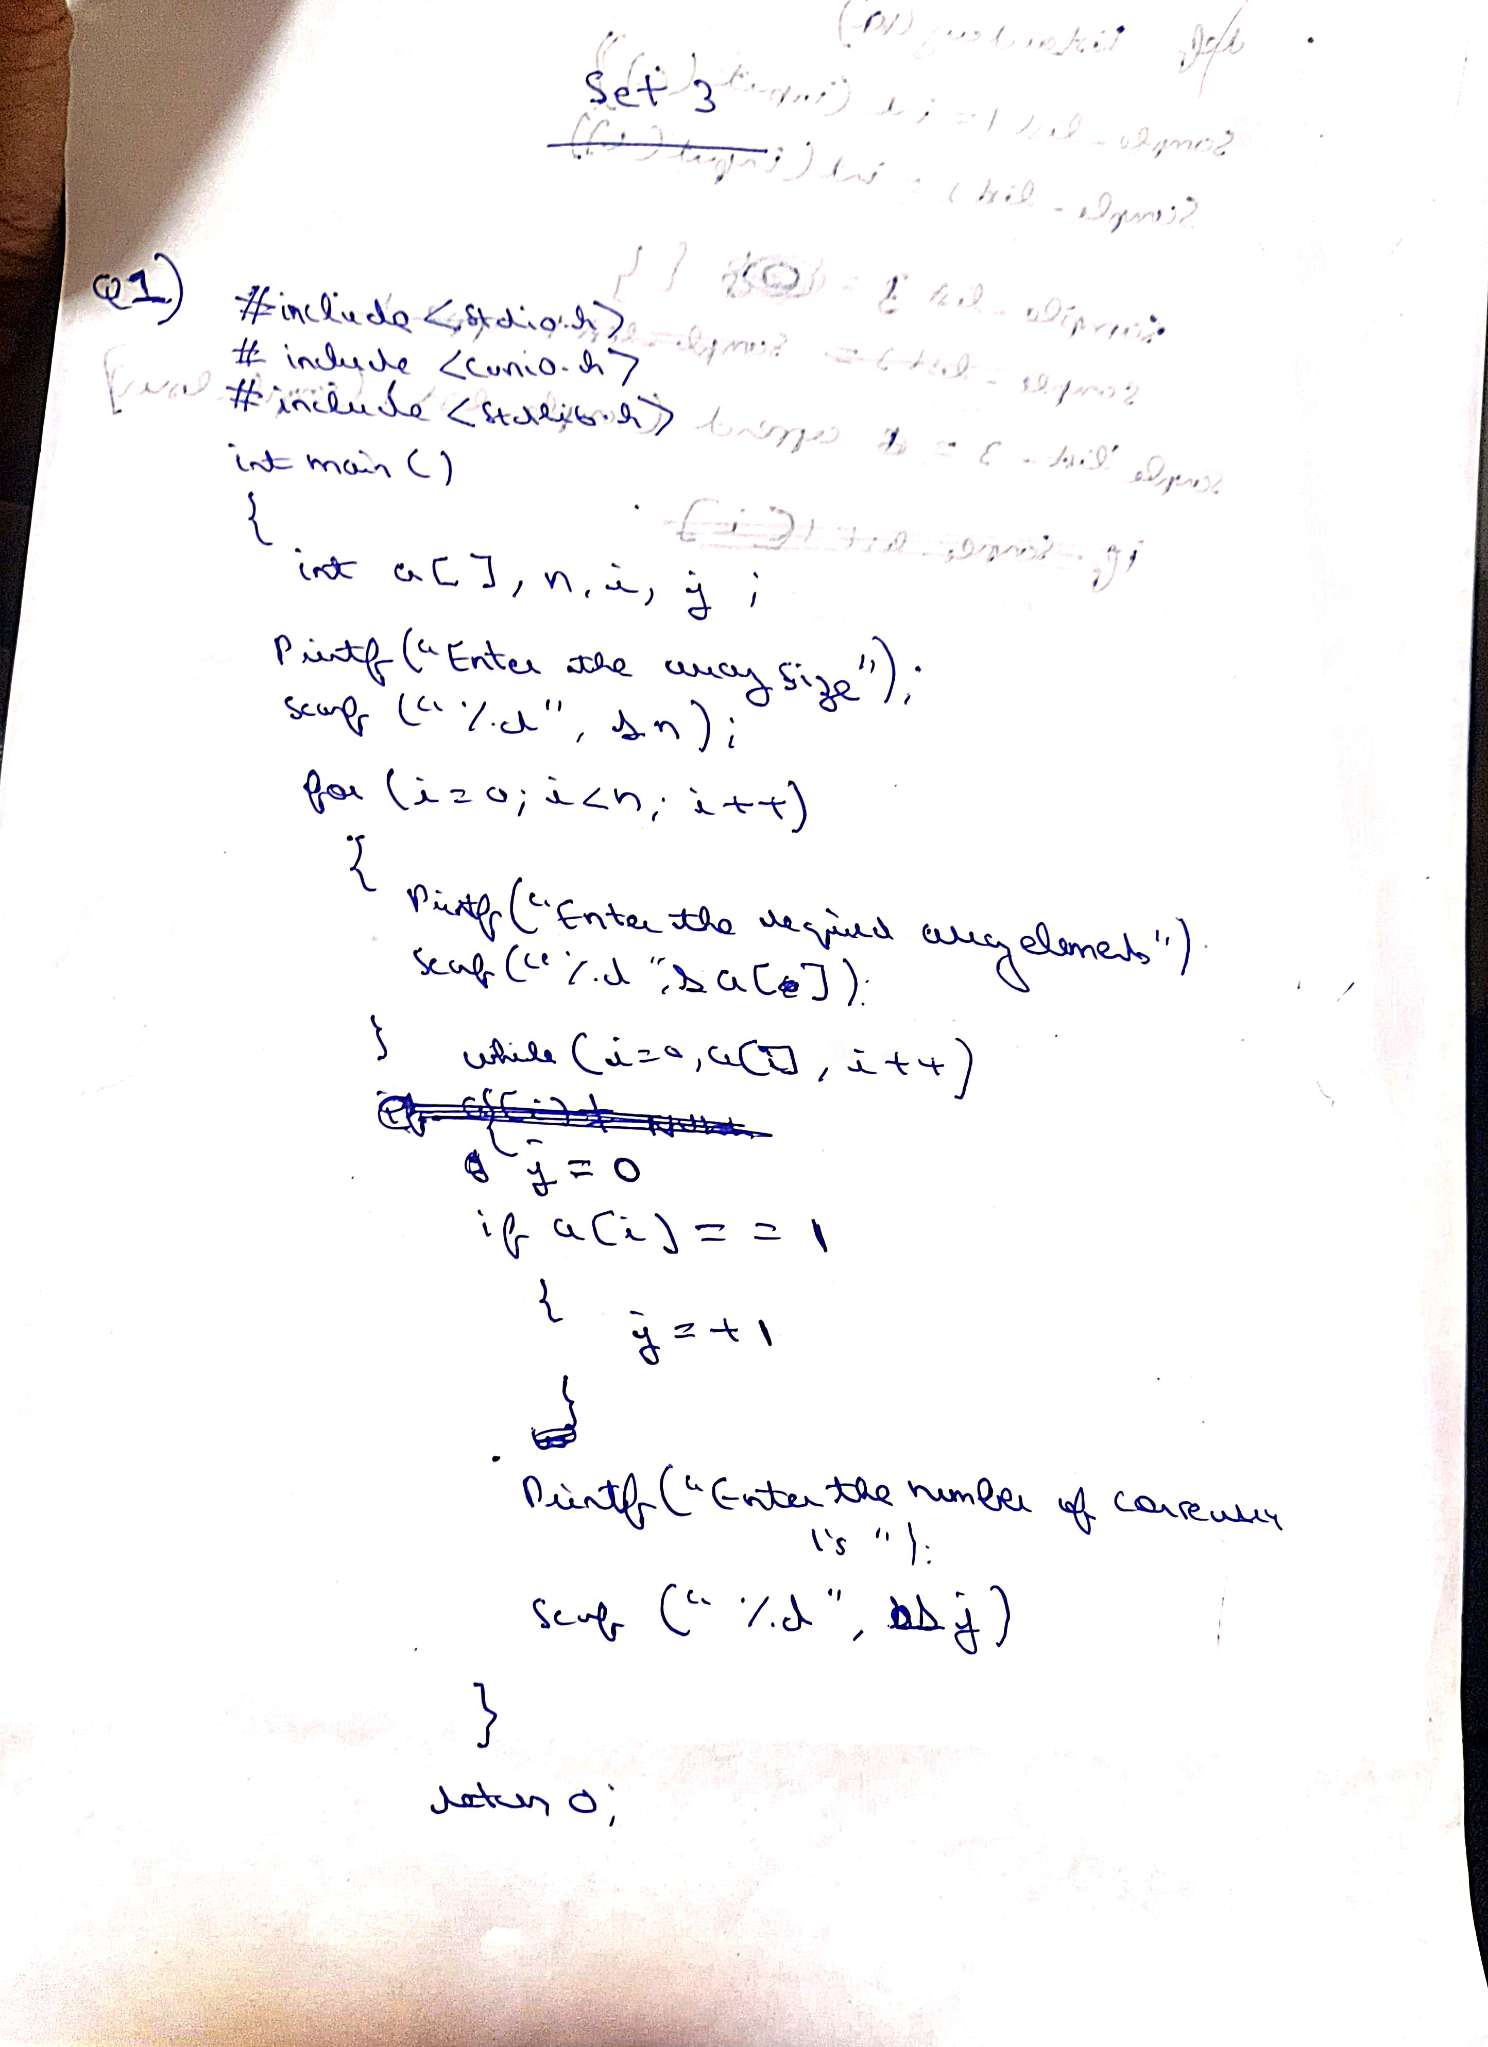 Set 3
Q1)
#include <stdio.h>
# include <conio.h>
#include <stdlib.h>
int main ()
{
int a[], n, i, j ;
Printf("Enter the array size");
scanf ("%d", &n);
for (i=0; i<n; i++)
{
Printf("Enter the required array elements");
scanf("%d", &a[i]);
}
while (i=0, a[i], i++)
{
j = 0
if a[i] == 1
{
j =+1
}
Printf("Enter the number of
1's");
Scanf ("%d", &j)
}
return 0;